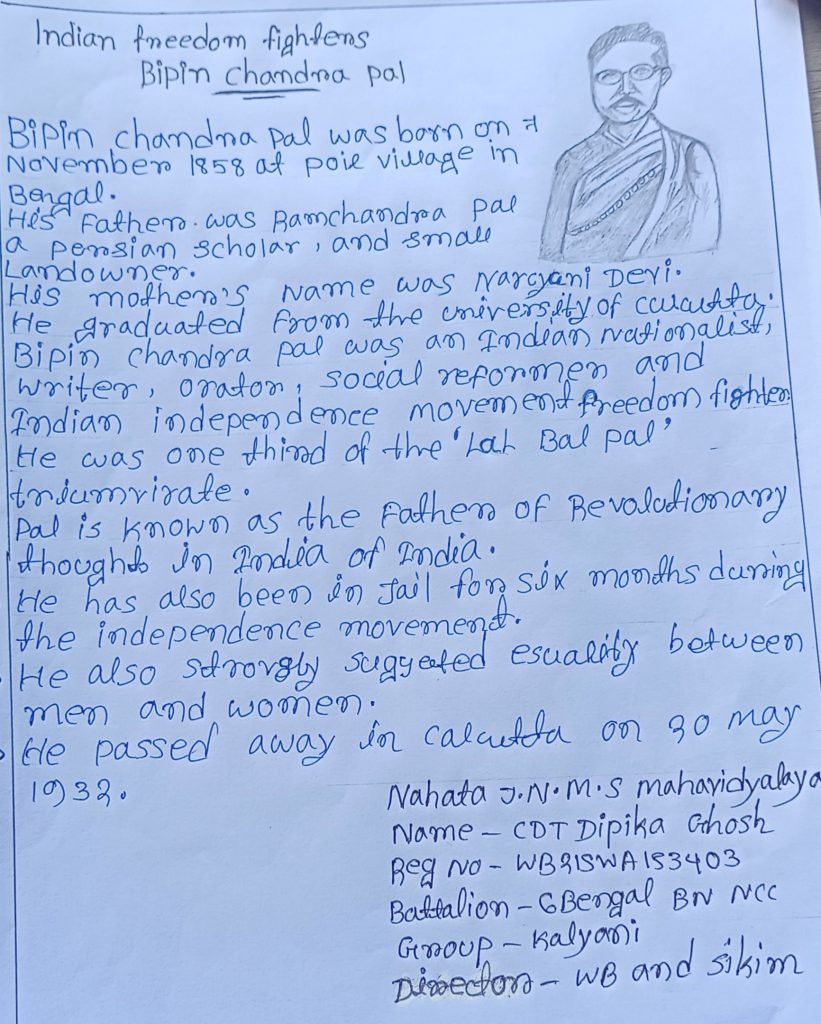 Indian freedom fighters
Bipin chandra pal
Bipin chandra pal was born on 7
November 1858 at poil village in
Bengal.
His Father was Ramchandra pal
a persian scholar, and small
Landowner.
His mother's name was Narayani Devi.
He graduated from the university of calcutta.
Bipin chandra pal was an Indian nationalist,
writer, orator, social reformer and
Indian independence movement freedom fighter
He was one third of the 'Lal Bal pal'
triumvirate.
Pal is known as the Father of Revolutionary
thoughts in India of India.
He has also been in Jail for six months during
the independence movement.
He also strongly suggested esuality between
men and women.
He passed away in calcutta on 20 may
1932.
Nahata J.N.M.S mahavidyalaya
Name - CDT Dipika Ghosh
Reg No - WB21SWA153403
Battalion - 6 Bengal BN NCC
Group - Kalyani
Director - WB and sikim